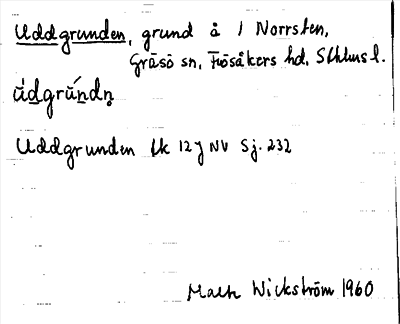 Uddgrunden, grund å / Norrsten,
Gräsö sn, Frösåkers hd, Sthlms l.
ú̀dgrún̄dn̥
Uddgrunden Ek 12 J NV Sj. 232
Wickström 1960